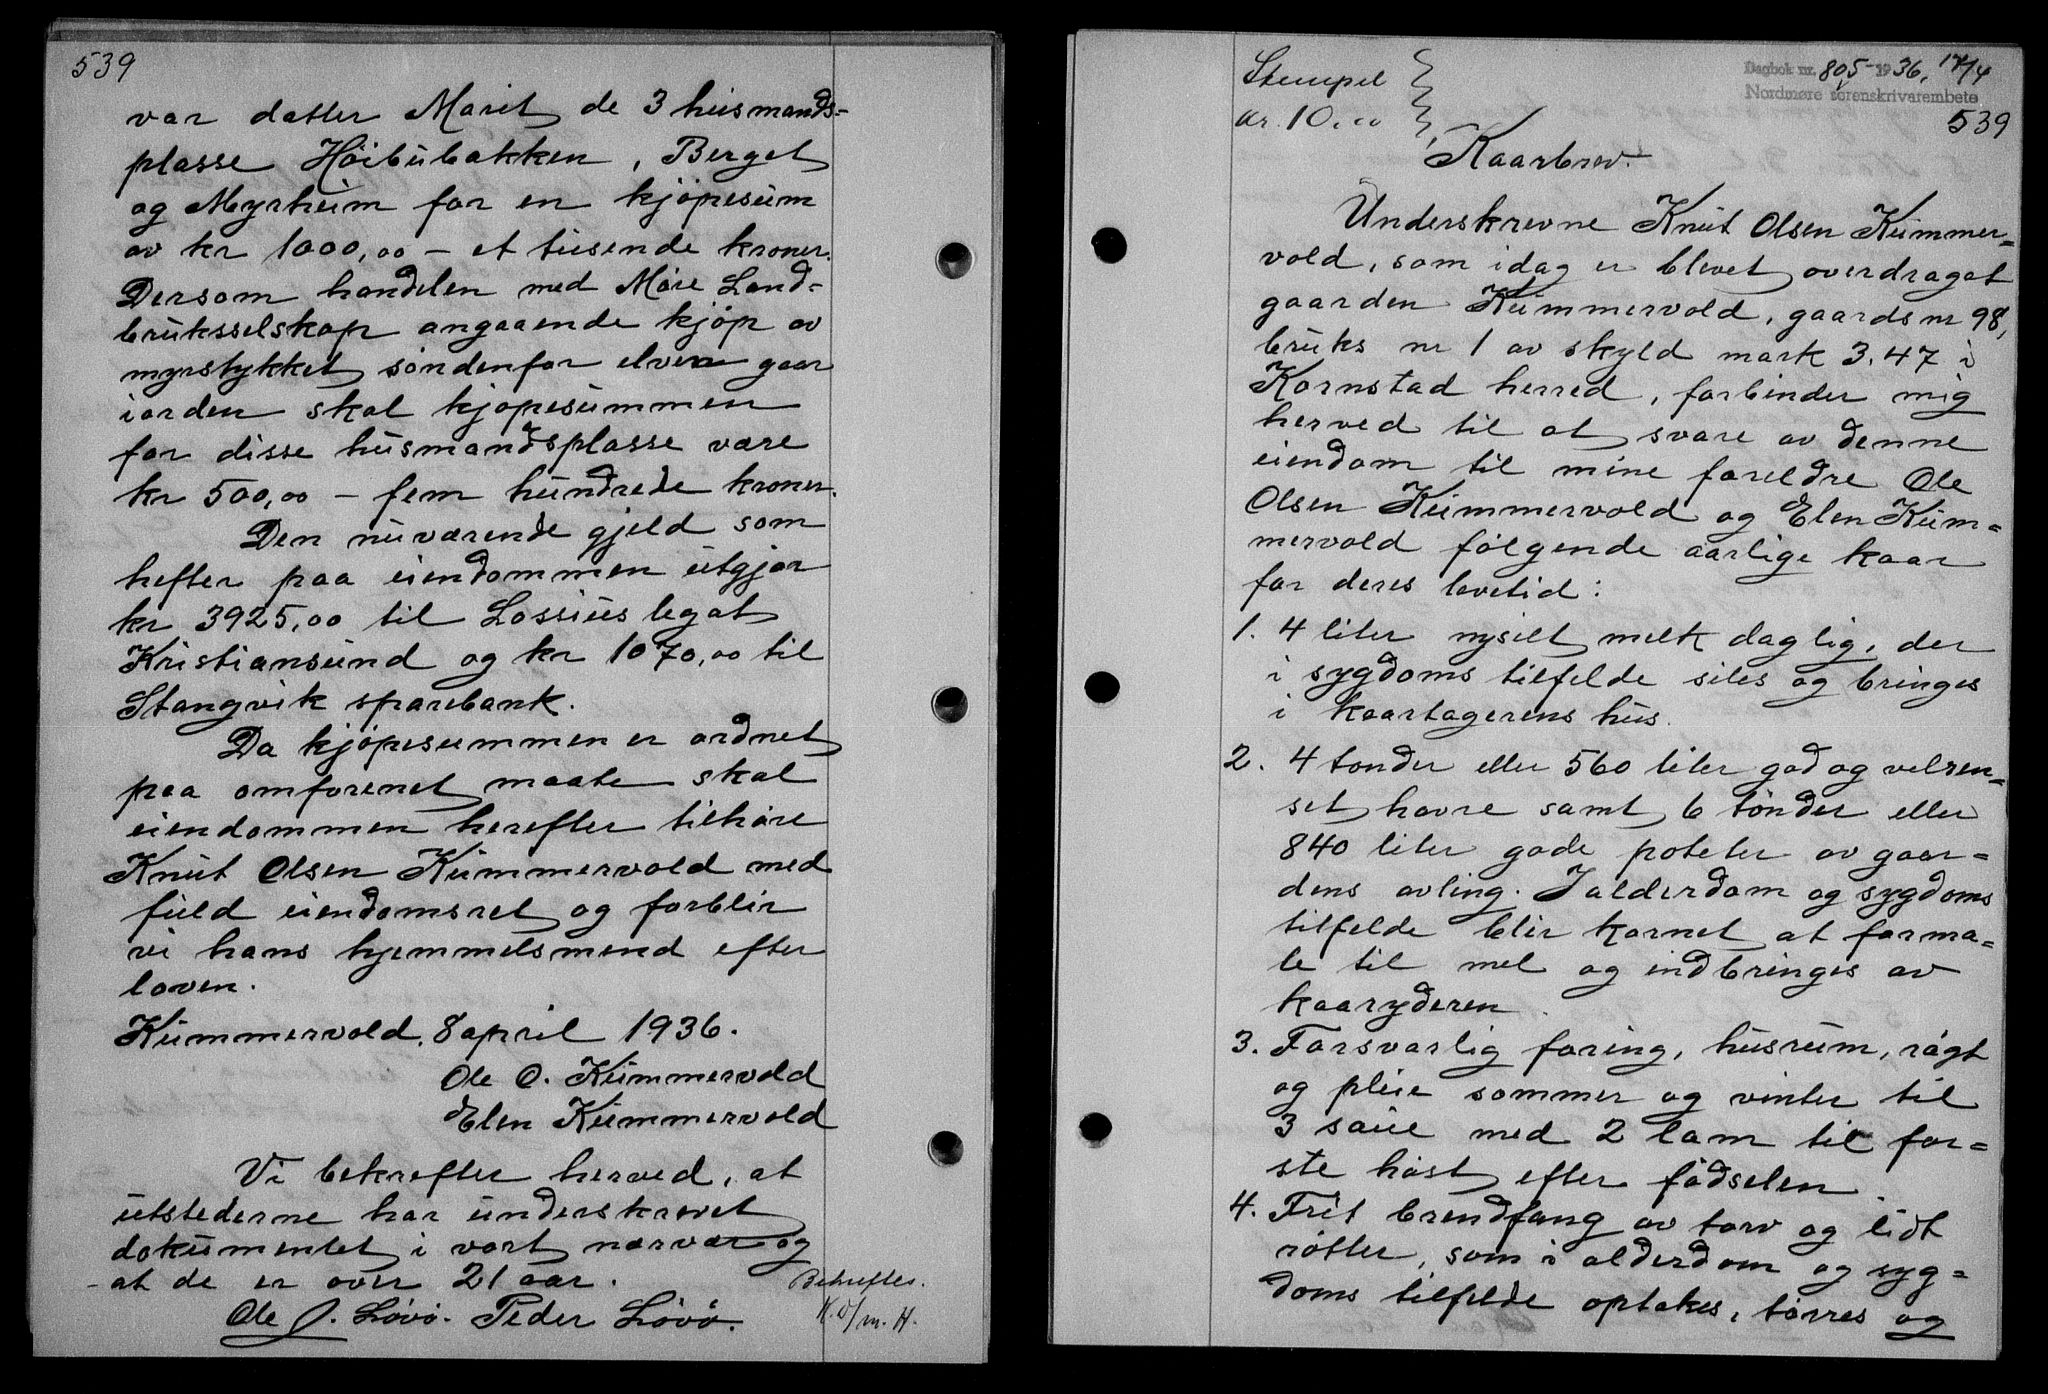 539
var datter Marit de 3 husmands-
plasse Höibubakken, Berget
og Myrheim for en kjöpesum
av kr 1000,00 – et tusende kroner.
Dersom handelen med Möre Land-
bruksselskap angaaende kjöp av
myrstykket söndenfor elven gaar
iorden skal kjöpesummen
for disse husmandsplasse være
kr 500,00 – fem hundrede kroner.
Den nuværende gjeld som
hefter paa eiendommen utgjör
kr 3925,00 til Lossius legat
Kristiansund og kr 1070,00 til
Stangvik sparebank.
Da kjöpesummen er ordnet
paa omforenet maate skal
eiendommen herefter tilhöre
Knut Olsen Kummervold med
fuld eiendomsret og forblir
vi hans hjemmelsmend efter
loven.
Kummervold, 8 april 1936.
Ole O. Kummervold
Elen Kummervold
Vi bekrefter herved, at
utstederne har underskrevet
dokumentet i vort nærvær og
at de er over 21 aar.
Ole J. Lövö. Peder Lövö.
Bekreftes.
Stempel
kr. 10.00
Dagbok nr. 805 - 1936, 17/4
Nordmøre sorenskrivarembete
539
Kaarbrev.
Underskrevne Knut Olsen Kummer-
vold, som idag er blevet overdraget
gaarden Kummervold, gaards nr 98,
bruks nr 1 av skyld mark 3.47 i
Kornstad herred, forbinder mig
herved til at svare av denne
eiendom til mine foreldre Ole
Olsen Kummervold og Elen Kum-
mervold følgende aarlige kaar
for deres levetid:
1. 4 liter nysilt melk daglig, der
i sygdoms tilfelde siles og bringes
i kaartagerens hus.
2. 4 tönder eller 560 liter god og velren-
set havre samt 6 tönder eller
840 liter gode poteter av gaar-
dens avling. I alderdom og sygdoms
tilfelde blir kornet at forma-
le til mel og indbringes av
kaaryderen.
3. Forsvarlig foring, husrum, rögt
og pleie sommer og vinter til
3 saue med 2 lam til för-
ste höst efter födselen.
4. Frit brendfang av torv og lidt
rötter, som i alderdom og syg-
doms tilfelde optakes, törres og